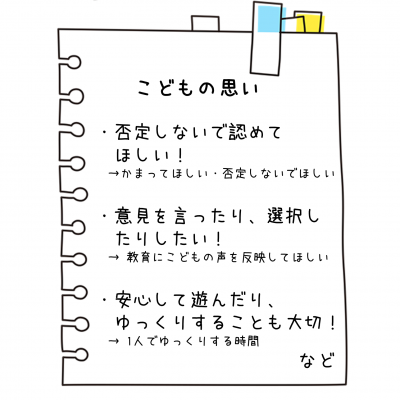 こどもの思い
・否定しないで認めて
ほしい！
→かまってほしい・否定しないでほしい
・意見を言ったり、選択し
たりしたい！
→ 教育にこどもの声を反映してほしい
・安心して遊んだり、
ゆっくりすることも大切！
→ 1人でゆっくりする時間
など